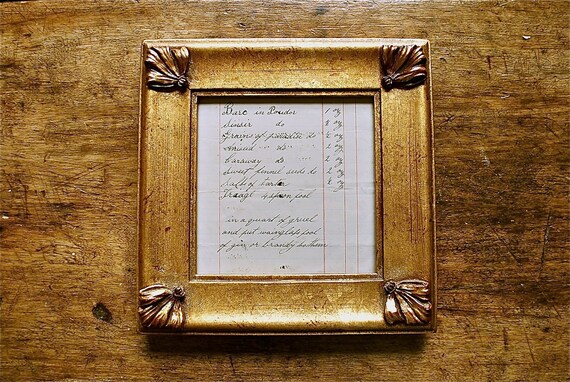 Barc in Powder 1 oz
Ginser do 2 oz
Grains of paradise do ½ oz
Anisud " do " 2 oz
Caraway do " 2 oz
Sweet fennel seeds do 2 oz
Salts of tartar ½ oz
Treagl spoon fool
in a quart of gruel
and put wainglass fool
of gin or brandy to them